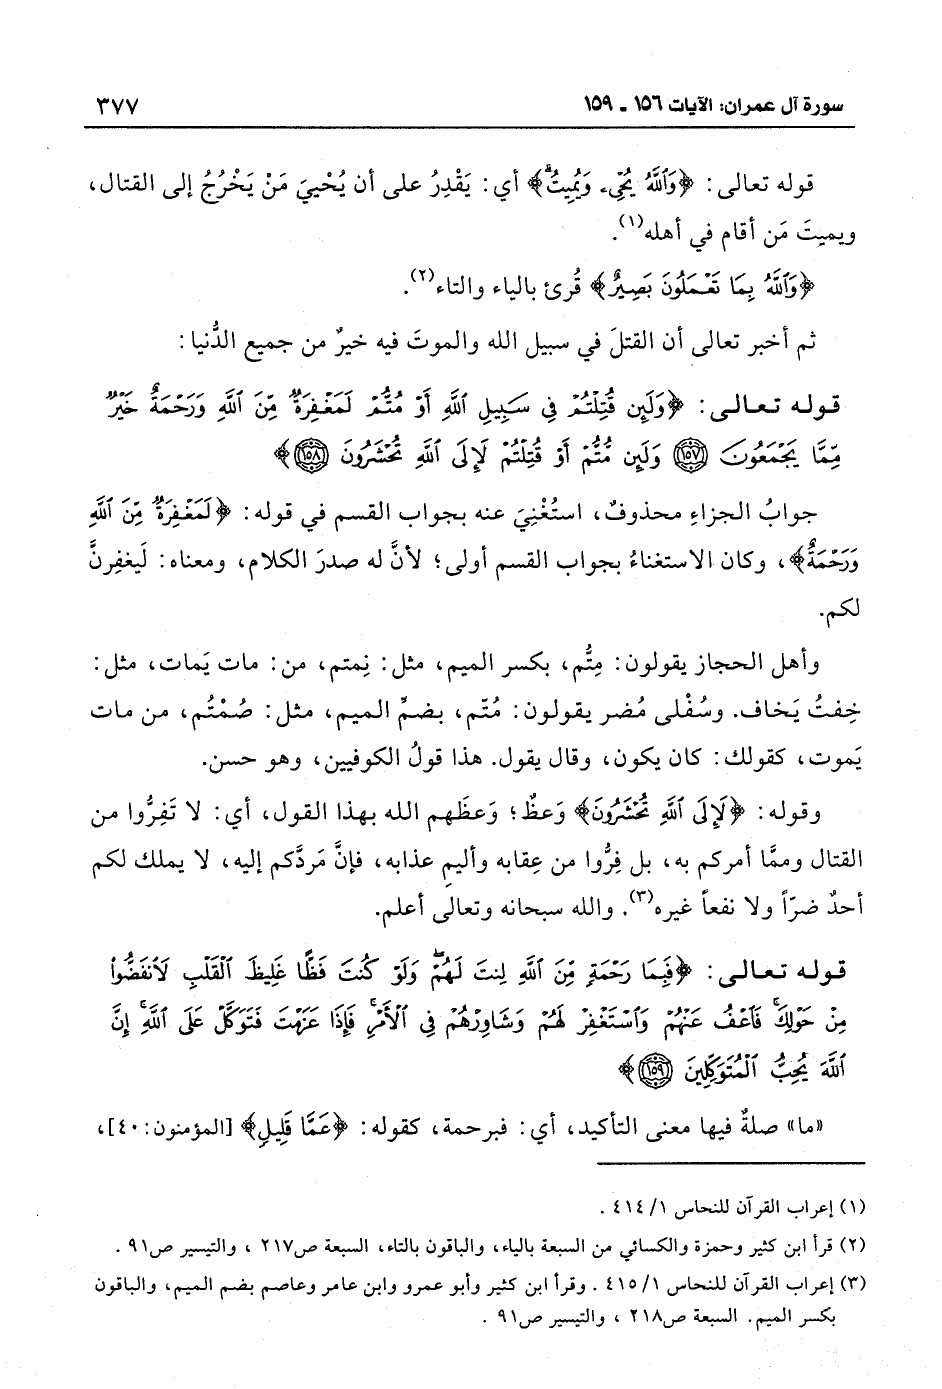 سورة آل عمران: الآيات ١٥٦ ـ ١٥٩ ٣٧٧
قوله تعالى: ﴿وَٱللَّهُ يُحْيِۦ وَيُمِيتُۗ﴾ أي: يَقْدِرُ على أن يُحْييَ مَنْ يَخْرُجُ إلى القتال،
ويميتَ مَن أقام في أهله(١).
﴿وَٱللَّهُ بِمَا تَعْمَلُونَ بَصِيرٌ﴾ قُرئ بالياء والتاء(٢).
ثم أخبر تعالى أن القتلَ في سبيل الله والموتَ فيه خيرٌ من جميع الدُّنيا:
قوله تعالى: ﴿وَلَئِن قُتِلْتُمْ فِي سَبِيلِ ٱللَّهِ أَوْ مُتُّمْ لَمَغْفِرَةٌ مِّنَ ٱللَّهِ وَرَحْمَةٌ خَيْرٌ
مِّمَّا يَجْمَعُونَ ﴿١٥٧﴾ وَلَئِن مُّتُّمْ أَوْ قُتِلْتُمْ لَإِلَى ٱللَّهِ تُحْشَرُونَ ﴿١٥٨﴾﴾
جوابُ الجزاءِ محذوفٌ، استُغْنِيَ عنه بجواب القسم في قوله: ﴿لَمَغْفِرَةٌ مِّنَ ٱللَّهِ
وَرَحْمَةٌ﴾، وكان الاستغناءُ بجواب القسم أولى؛ لأنَّ له صدرَ الكلام، ومعناه: لَيغفِرنَّ
لكم.
وأهل الحجاز يقولون: مِتُّم، بكسر الميم، مثل: نِمتم، من: مات يَمات، مثل:
خِفتُ يَخاف. وسُفْلى مُضر يقولون: مُتّم، بضمِّ الميم، مثل: صُمْتُم، من مات
يَموت، كقولك: كان يكون، وقال يقول. هذا قولُ الكوفيين، وهو حسن.
وقوله: ﴿لَإِلَى ٱللَّهِ تُحْشَرُونَ﴾ وَعظٌ؛ وَعظَهم الله بهذا القول، أي: لا تَفِرُّوا من
القتال وممَّا أمركم به، بل فِرُّوا من عِقابه وأليمِ عذابه، فإنَّ مَردَّكم إليه، لا يملك لكم
أحدٌ ضرّاً ولا نفعاً غيره(٣). والله سبحانه وتعالى أعلم.
قوله تعالى: ﴿فَبِمَا رَحْمَةٍ مِّنَ ٱللَّهِ لِنتَ لَهُمْۖ وَلَوْ كُنتَ فَظًّا غَلِيظَ ٱلْقَلْبِ لَٱنفَضُّواْ
مِنْ حَوْلِكَۖ فَٱعْفُ عَنْهُمْ وَٱسْتَغْفِرْ لَهُمْ وَشَاوِرْهُمْ فِي ٱلْأَمْرِۖ فَإِذَا عَزَمْتَ فَتَوَكَّلْ عَلَى ٱللَّهِۚ إِنَّ
ٱللَّهَ يُحِبُّ ٱلْمُتَوَكِّلِينَ ﴿١٥٩﴾﴾
«ما» صلةٌ فيها معنى التأكيد، أي: فبرحمة، كقوله: ﴿عَمَّا قَلِيلٍ﴾ [المؤمنون: ٤٠]،
(١) إعراب القرآن للنحاس ١/ ٤١٤ .
(٢) قرأ ابن كثير وحمزة والكسائي من السبعة بالياء، والباقون بالتاء، السبعة ص٢١٧ ، والتيسير ص٩١ .
(٣) إعراب القرآن للنحاس ١/ ٤١٥ . وقرأ ابن كثير وأبو عمرو وابن عامر وعاصم بضم الميم، والباقون
بكسر الميم. السبعة ص٢١٨ ، والتيسير ص٩١ .